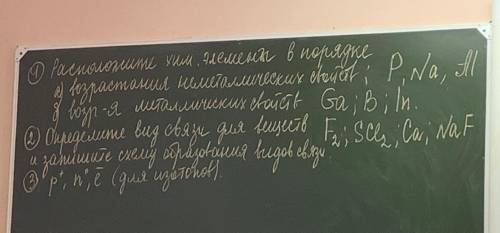 ① Расположите хим. элементы в порядке
а) возрастания неметаллических свойств; P, Na, Al
б) возр-я металлических свойств Ga; B; In.
② Определите вид связи для веществ F₂; SCl₂; Ca; NaF
и запишите схему образования видов связи.
③ p⁺, n⁰, ē (для изотопов).